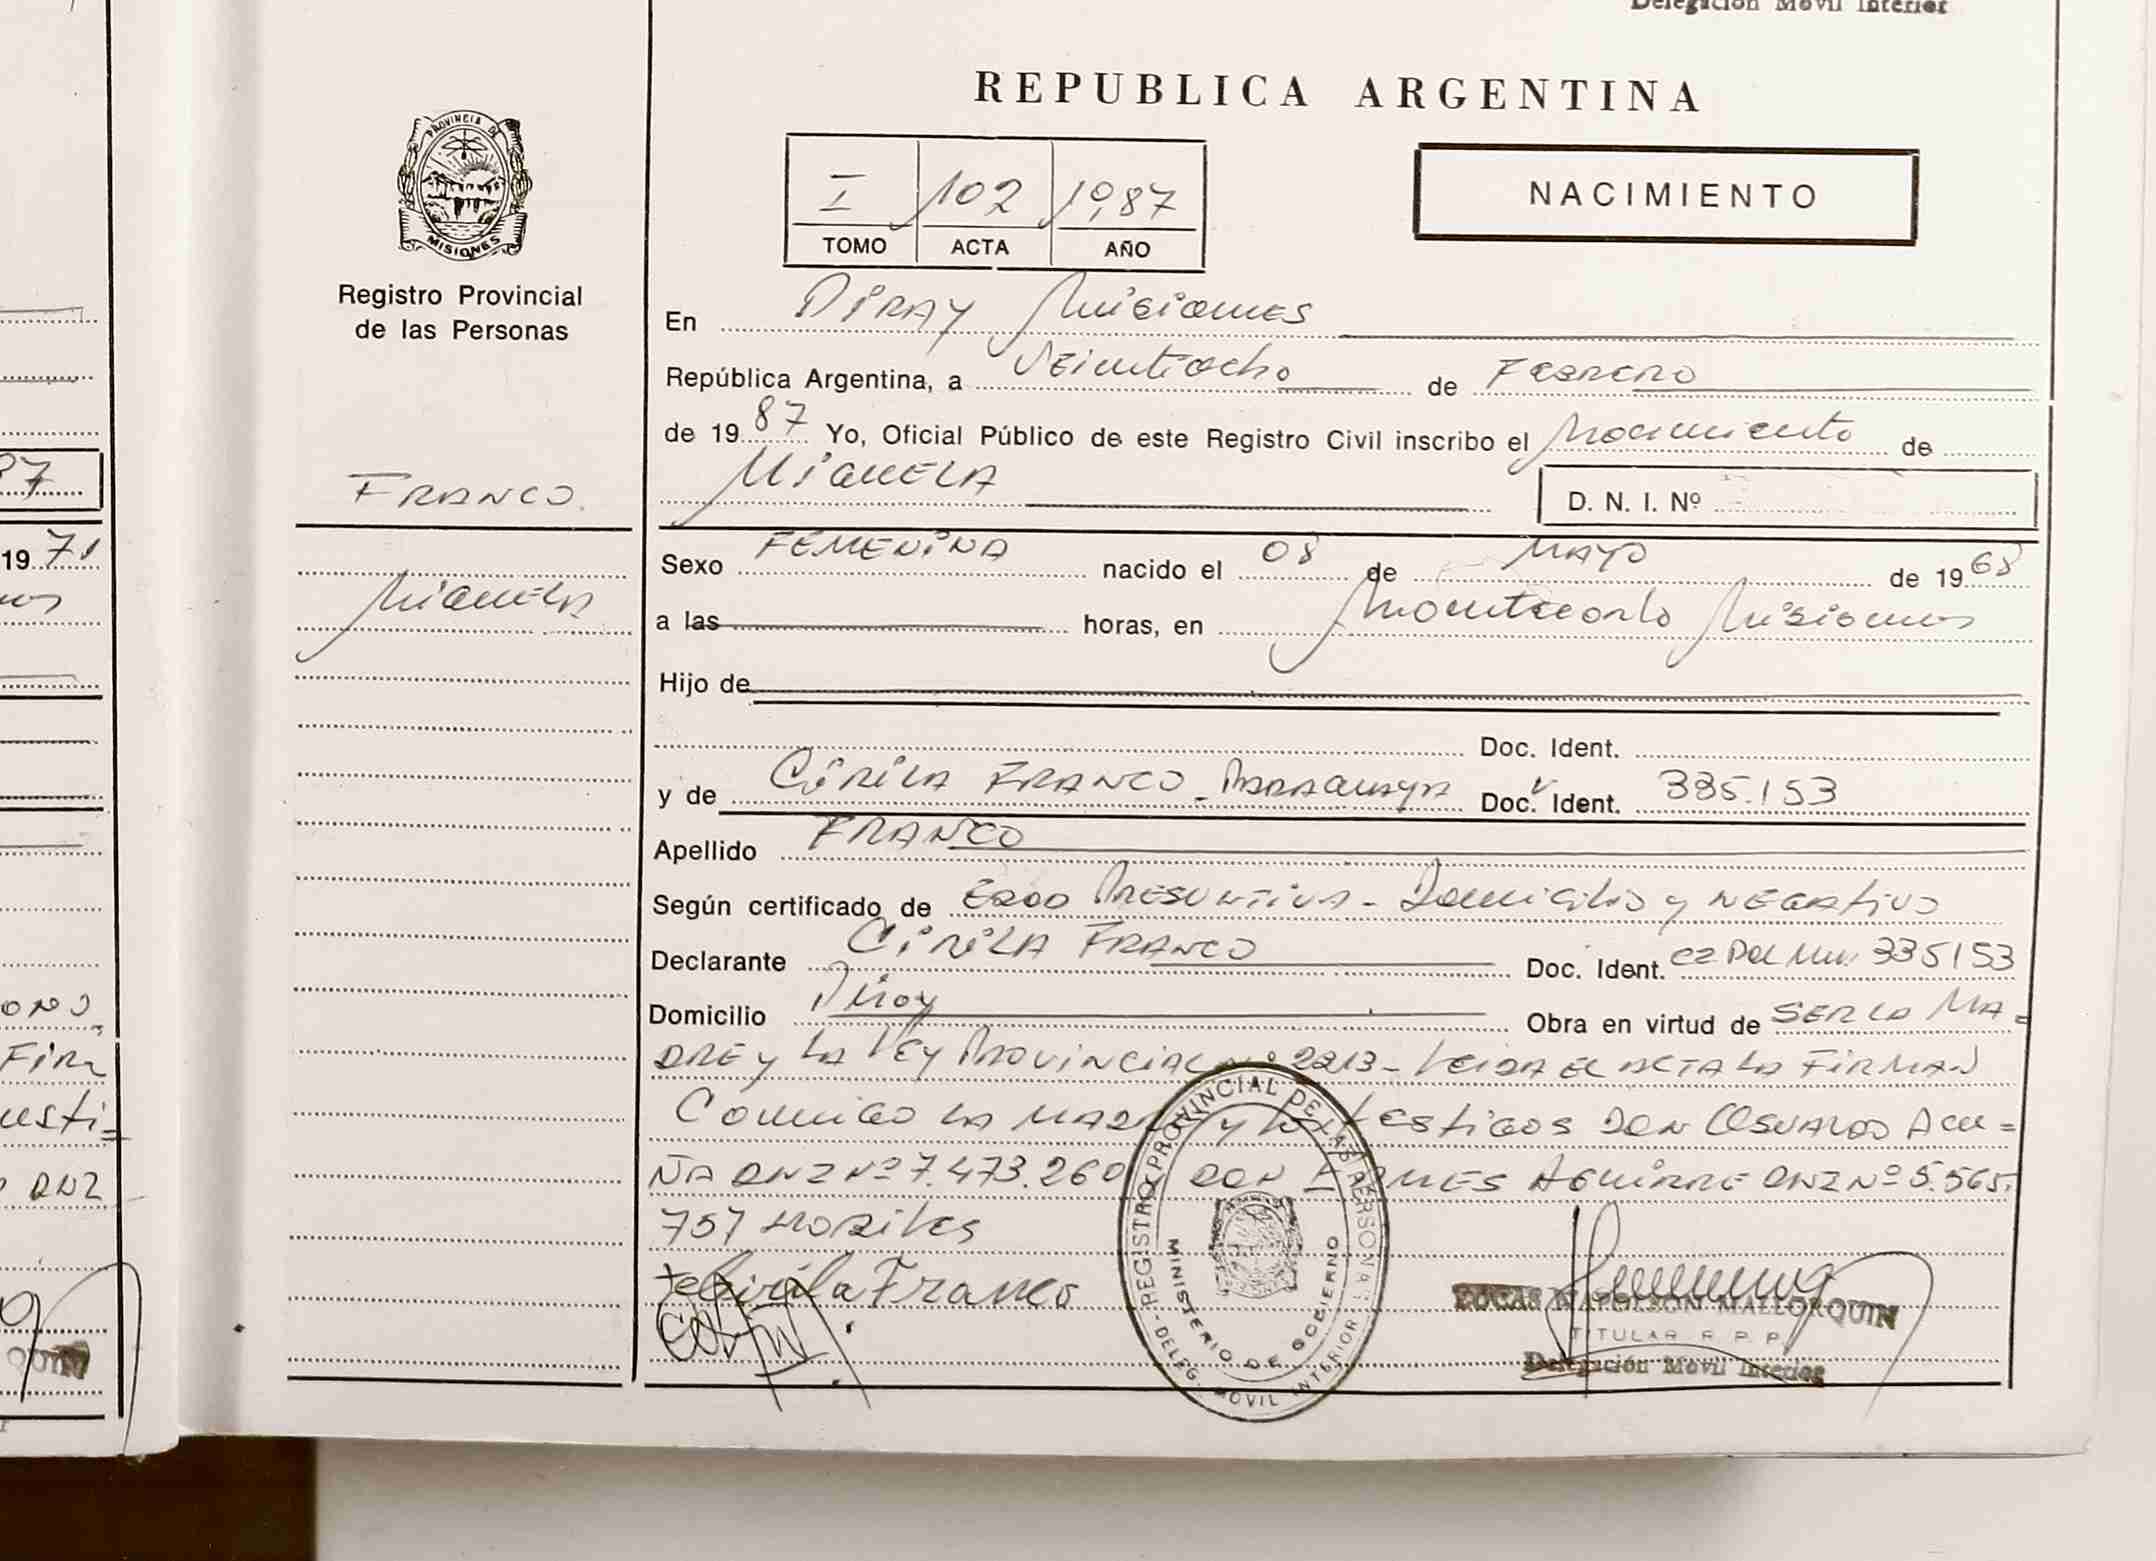 Delegación Movil Interior
REPUBLICA ARGENTINA
PROVINCIA DE
MISIONES
I 102 1987
TOMO ACTA AÑO
NACIMIENTO
Registro Provincial
de las Personas
En Piray Misiones
República Argentina, a Veintiocho de Febrero
de 1987 Yo, Oficial Público de este Registro Civil inscribo el Nacimiento de
Miquela
D. N. I. Nº
FRANCO.
Miquela
Sexo FEMENINA nacido el 08 de MAYO de 1968
a las horas, en Montecarlo Misiones
Hijo de
Doc. Ident.
y de Cirila FRANCO - PARAGUAYA Doc. Ident. 335.153
Apellido FRANCO
Según certificado de EDAD PRESUNTIVA - Domicilio y NEGATIVO
Declarante Cirila FRANCO Doc. Ident. CZ Pol Mis. 335153
Domicilio Piray Obra en virtud de SER LA MA=
DRE y LA LEy PROVINCIAL Nº 2213 - Leida EL ACTA LA FIRMAN
Conmigo LA MADRE y los testigos DON Osvaldo Acu=
ÑA DNI Nº 7.473.260 DON AGUIRRE DNI Nº 5.565.
757 Habiles
Cirila Franco
REGISTRO PROVINCIAL DE LAS PERSONAS
MINISTERIO DE GOBIERNO
- DELEG. MOVIL INTERIOR -
LUCAS NAPOLEON MALLORQUIN
TITULAR R. P. P.
Delegación Movil Interior
87
1971
ONJ
FIRM
usti=
DNI
QUIN